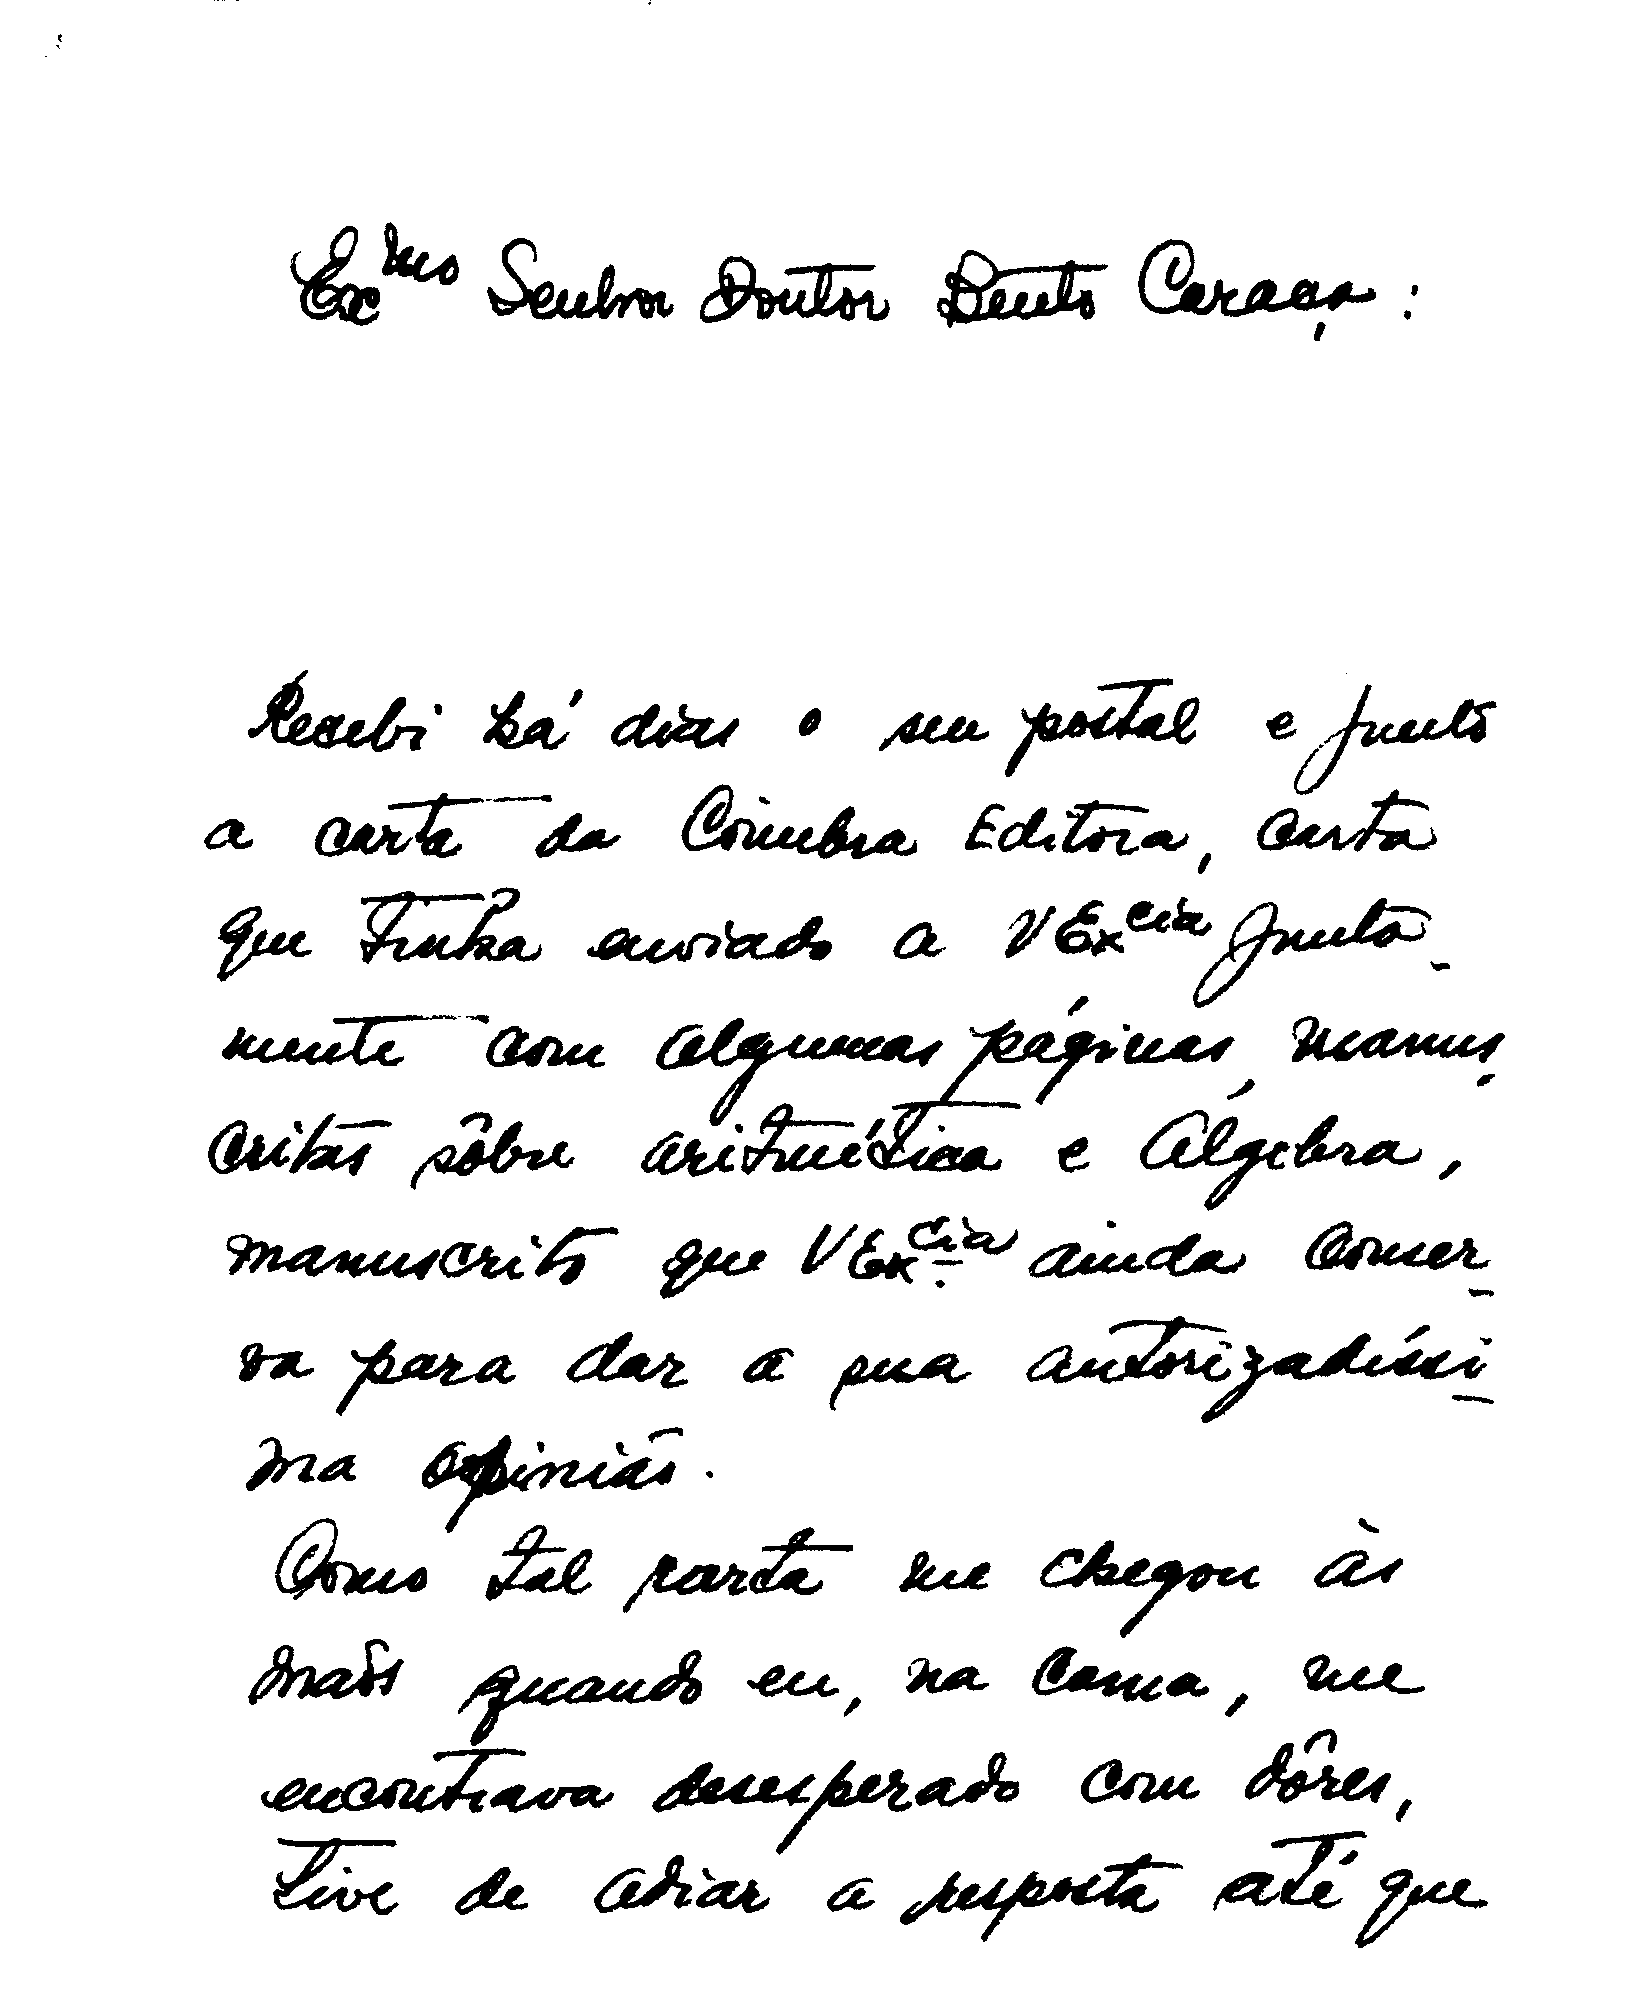 Exmo Senhor Doutor Bento Caraça:
Recebi há dias o seu postal e junto
a carta da Coimbra Editora, carta
que tinha enviado a V Excia junta-
mente com algumas páginas, manus-
critas sôbre aritmética e Álgebra,
manuscrito que V Excia ainda conser-
va para dar a sua autorizadíssi-
ma opinião.
Como tal carta me chegou às
mãos quando eu, na cama, me
encontrava desesperado com dôres,
tive de adiar a resposta até que